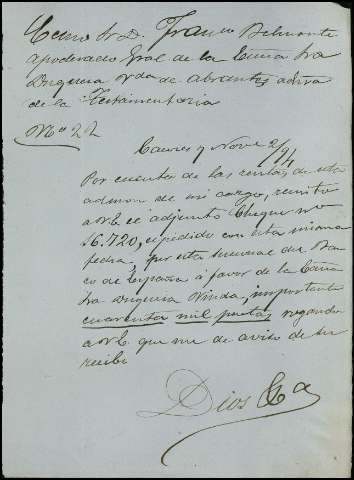 Excmo Sr D. Franco Belmonte
Apoderado Gral de la Excma Sra
Duquesa Vda de Abrantes adva
de la Testamentaria
No 22
Caceres y Nove 2/94
Por cuenta de las rentas de esta
admon de mi cargo, remito
a V.E. el adjunto cheque no
16.720, expedido con esta misma
fecha, por esta sucursal del Ban
co de España á favor de la Excma
Sra Duquesa Viuda, importante
cuarenta mil pesetas rogando
a V.E. que me de aviso de su
recibo
Dios &a